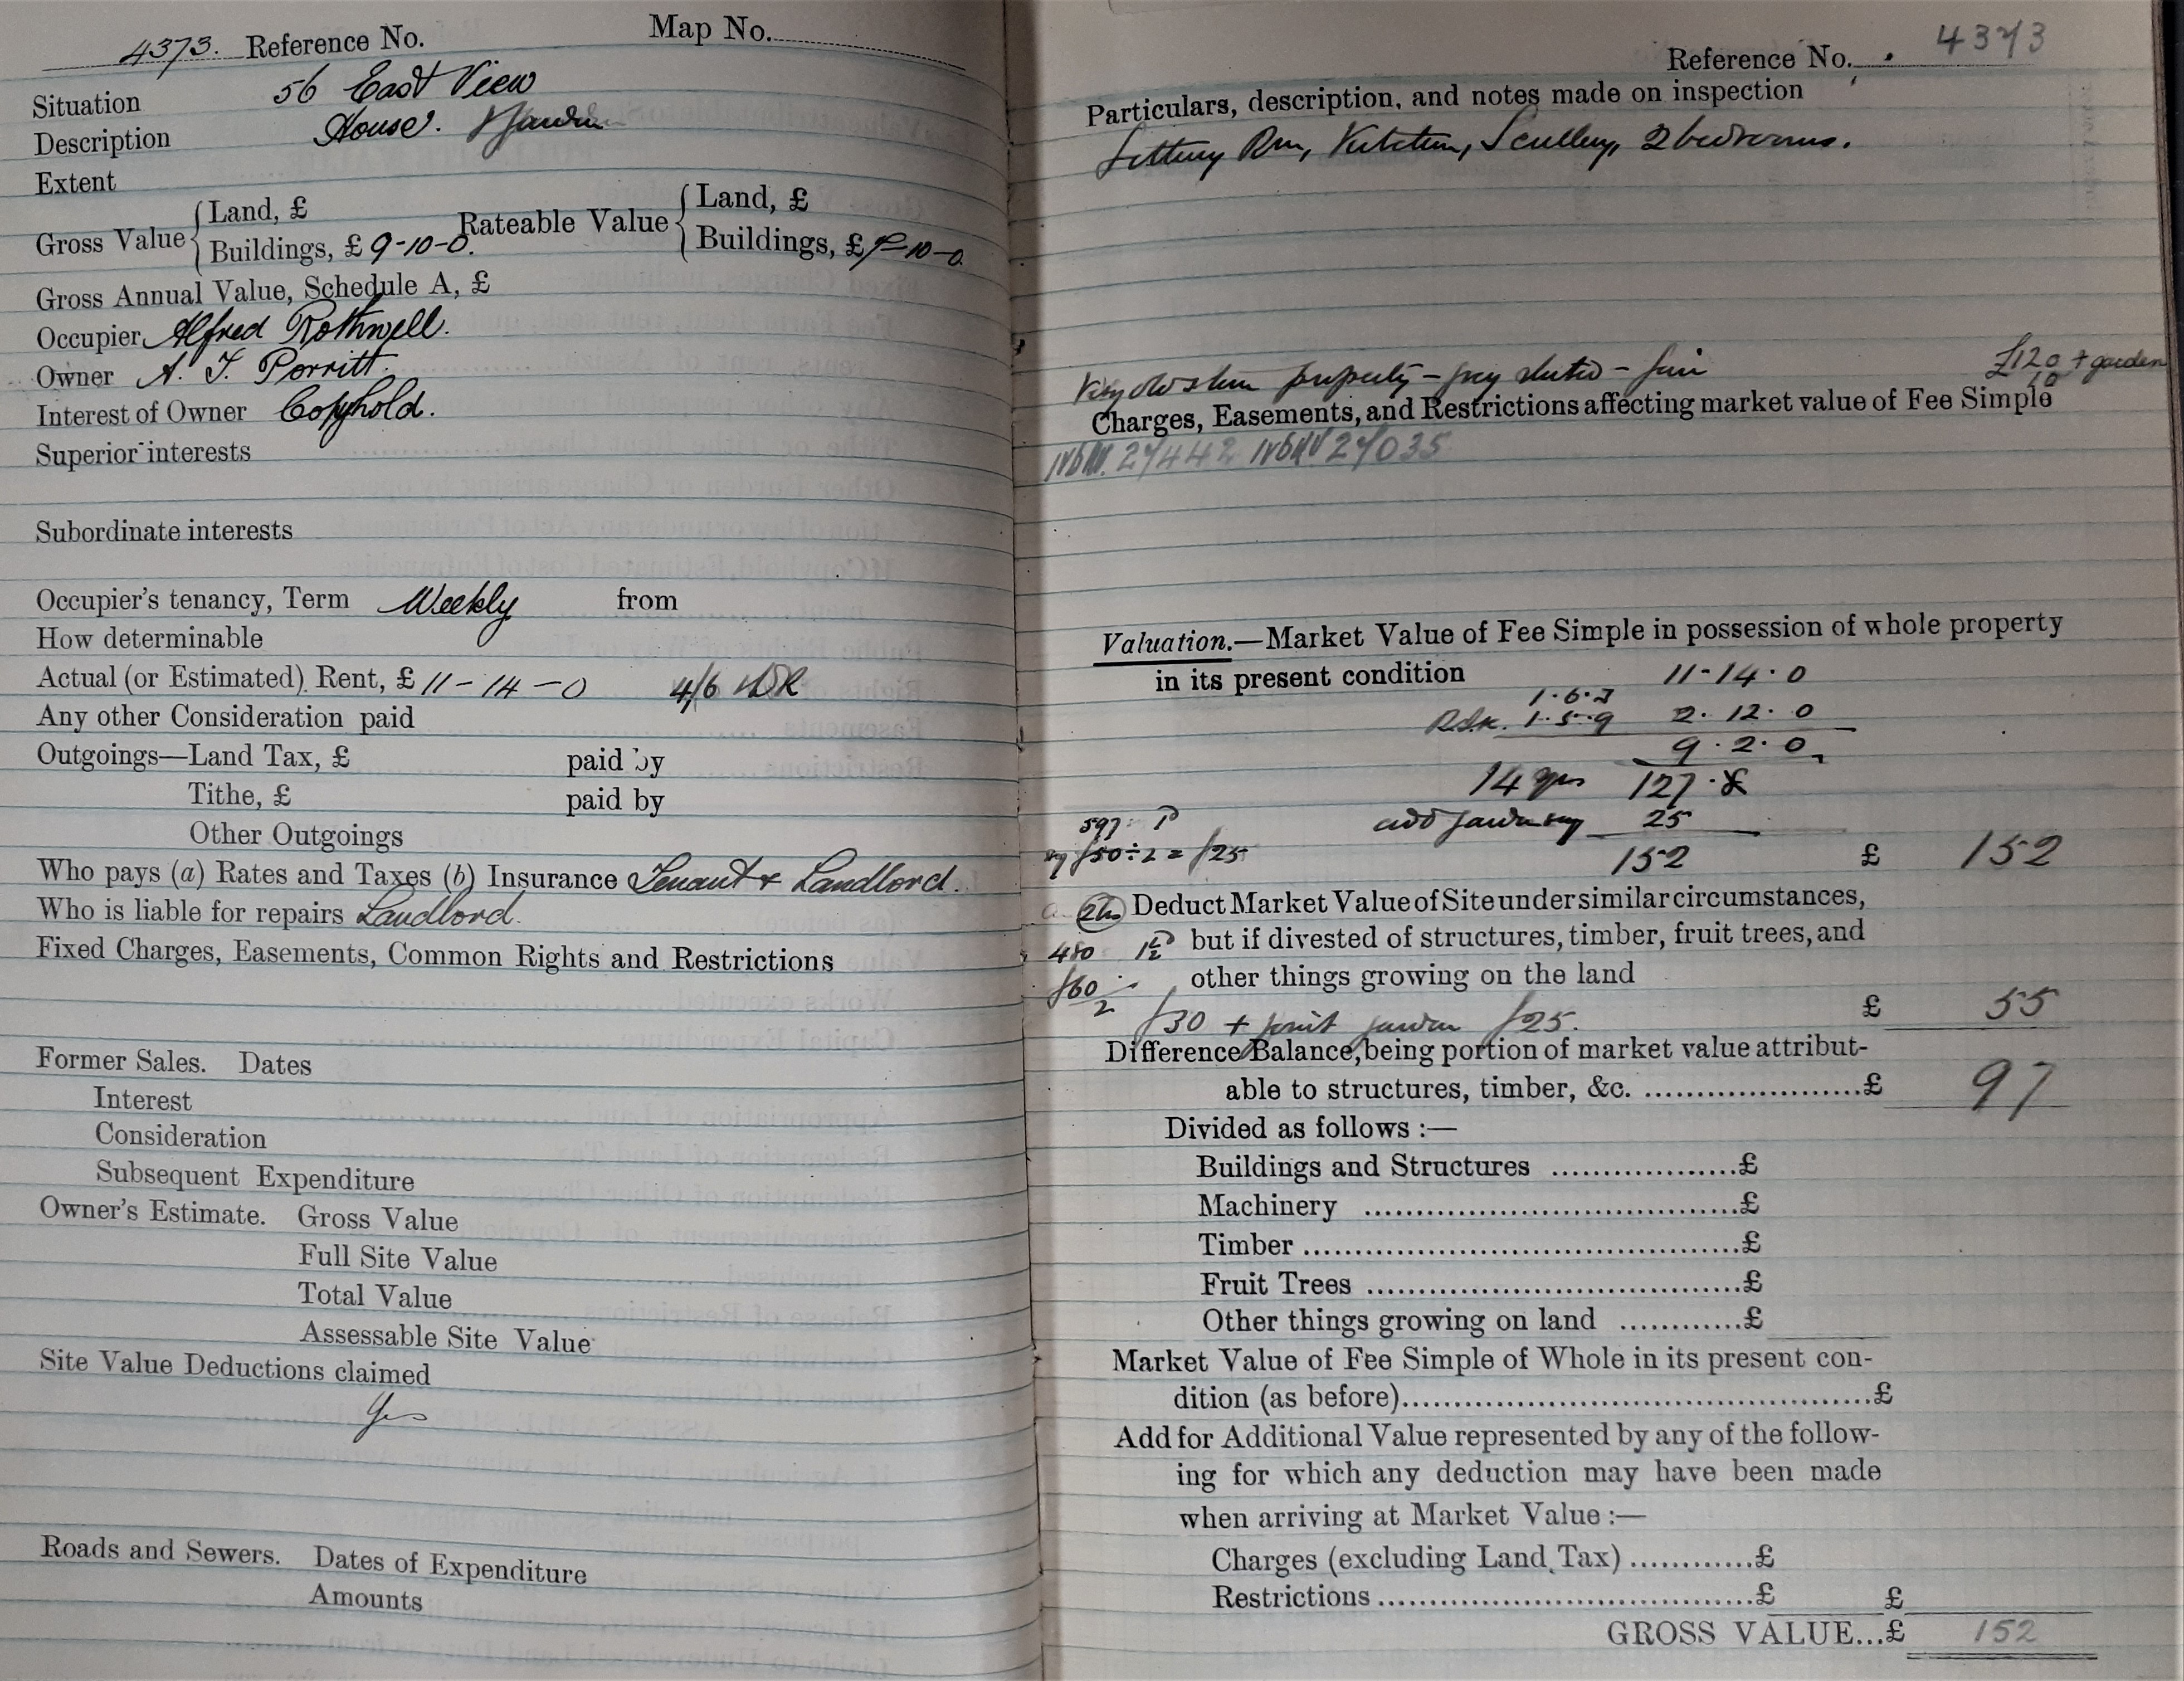 4373. Reference No. Map No.
Situation 56 East View
Description House. & Garden
Extent
Gross Value { Land, £
Buildings, £ 9-10-0.
Rateable Value { Land, £
Buildings, £ -10-0
Gross Annual Value, Schedule A, £
Occupier Alfred Rothwell.
Owner A. T. Porritt.
Interest of Owner Copyhold.
Superior interests
Subordinate interests
Occupier's tenancy, Term Weekly from
How determinable
Actual (or Estimated) Rent, £ 11-14-0 4/6 LDR
Any other Consideration paid
Outgoings—Land Tax, £ paid by
Tithe, £ paid by
Other Outgoings
Who pays (a) Rates and Taxes (b) Insurance Tenant & Landlord.
Who is liable for repairs Landlord.
Fixed Charges, Easements, Common Rights and Restrictions
Former Sales. Dates
Interest
Consideration
Subsequent Expenditure
Owner's Estimate. Gross Value
Full Site Value
Total Value
Assessable Site Value
Site Value Deductions claimed
Yes
Roads and Sewers. Dates of Expenditure
Amounts
Reference No. 4373
Particulars, description, and notes made on inspection
Sitting Rm, Kitchen, Scullery, 2 bedrooms.
Very old stone property - grey slated - fair
£120 + garden
10
Charges, Easements, and Restrictions affecting market value of Fee Simple
27442 27035
Valuation.—Market Value of Fee Simple in possession of whole property
in its present condition 11-14.0
1.6.3
1.5.9 2.12.0
9.2.0
14 yrs 127.
add garden say 25
597
£50÷2 = £25
152 £ 152
Deduct Market Value of Site under similar circumstances,
480 but if divested of structures, timber, fruit trees, and
£60 other things growing on the land
2
£30 + front garden £25. £ 55
Difference Balance, being portion of market value attribut-
able to structures, timber, &c. £ 97
Divided as follows :—
Buildings and Structures £
Machinery £
Timber £
Fruit Trees £
Other things growing on land £
Market Value of Fee Simple of Whole in its present con-
dition (as before) £
Add for Additional Value represented by any of the follow-
ing for which any deduction may have been made
when arriving at Market Value :—
Charges (excluding Land Tax) £
Restrictions £ £
GROSS VALUE...£ 152